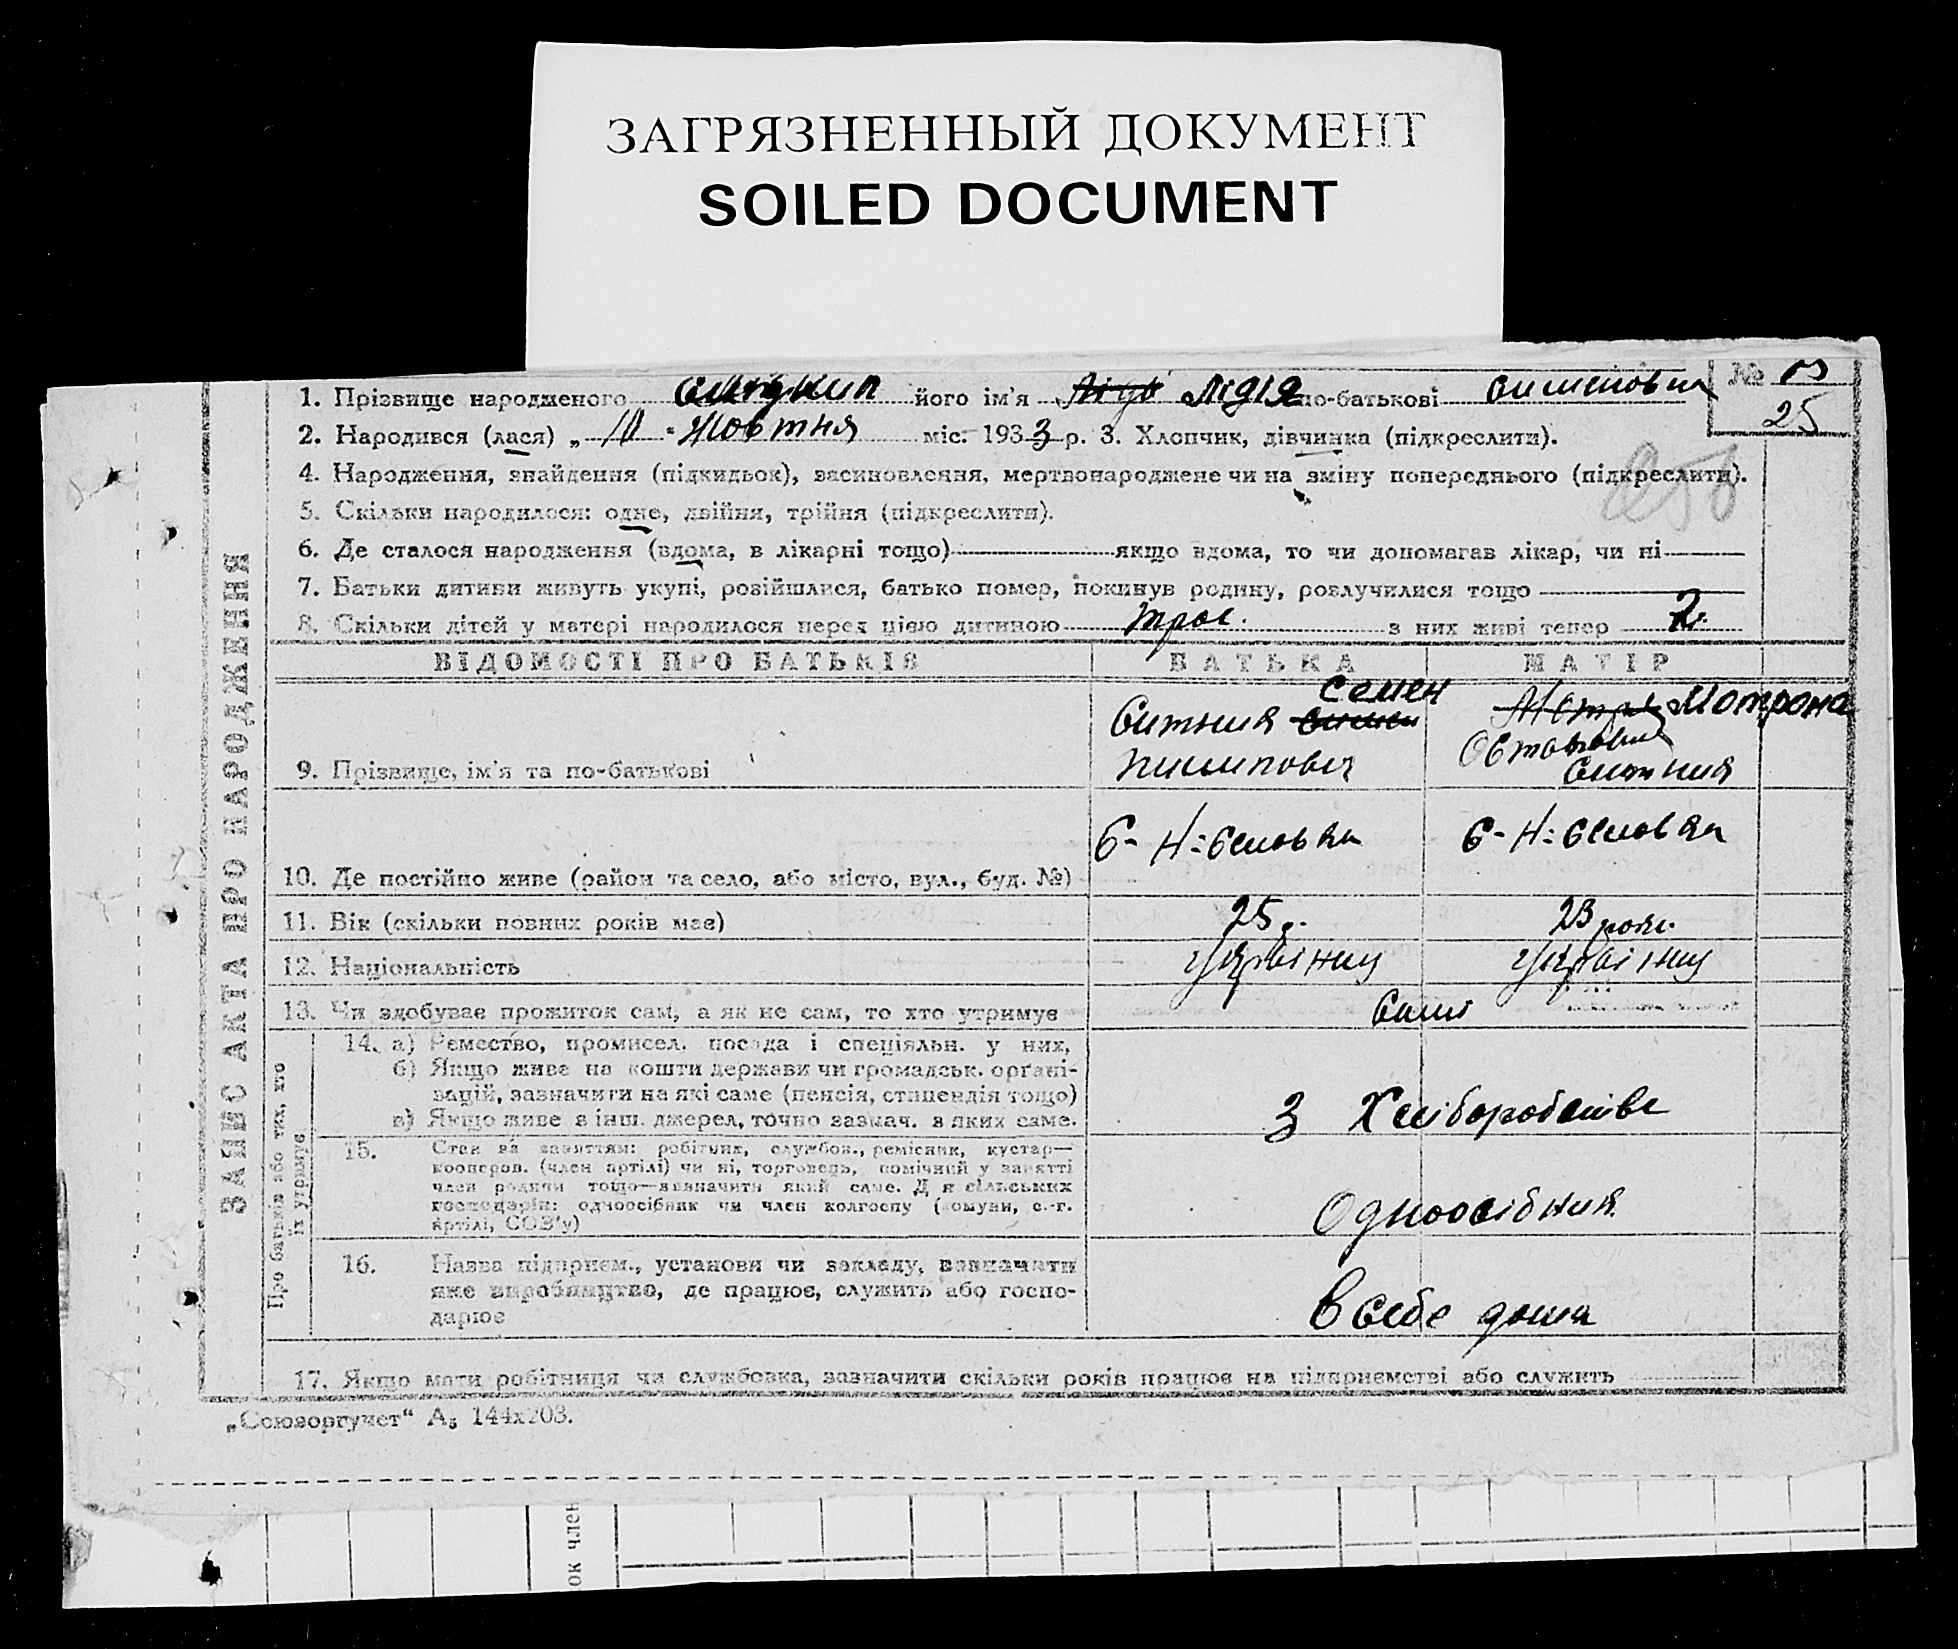 ЗАГРЯЗНЕННЫЙ ДОКУМЕНТ
SOILED DOCUMENT
№
25
1. Прізвище народженого його ім'я Лідія по-батькові
2. Народився (лася) „ 10 " жовтня міс. 1933 р. 3. Хлопчик, дівчинка (підкреслити).
4. Народження, знайдення (підкидьок), засиновлення, мертвонароджене чи на зміну попереднього (підкреслити).
5. Скільки народилося: одне, двійня, трійня (підкреслити).
6. Де сталося народження (вдома, в лікарні тощо) якщо вдома, то чи допомагав лікар, чи ні
7. Батьки дитини живуть укупі, розійшлися, батько помер, покинув родину, розлучилися тощо
8. Скільки дітей у матері народилося перед цією дитиною троє. з них живі тепер 2.
ЗАПИС АКТА ПРО НАРОДЖЕННЯ
ВІДОМОСТІ ПРО БАТЬКІВ БАТЬКА МАТІР
Семен
Мотрона
9. Прізвище, ім'я та по-батькові
10. Де постійно живе (район та село, або місто, вул., буд. №)
11. Вік (скільки повних років має) 25 р. 23 роки.
12. Національність
13. Чи здобуває прожиток сам, а як не сам, то хто утримує Самі
Про батьків або тих, хто
їх утримує
14. а) Ремество, промисел, посада і спеціяльн. у них,
б) Якщо живе на кошти держави чи громадськ. органі-
зацій, зазначити на які саме (пенсія, стипендія тощо)
в) Якщо живе з інш. джерел, точно зазнач. з яких саме.
З Хліборобства
15. Стан за заняттям: робітник, службов., ремісник, кустар—
кооперов. (член артілі) чи ні, торговець, помічний у занятті
член родини тощо—зазначити який саме. Для сільських
господарів: одноосібник чи член колгоспу (комуни, с.-г.
артілі, СОЗ'у)
Одноосібник
16. Назва підприєм., установи чи закладу, зазначити
яке виробництво, де працює, служить або госпо-
дарює
В себе дома
17. Якщо мати робітниця чи службовка, зазначити скільки років працює на підприємстві або служить
„Союзоргучет“ А₅ 144х203.
ок член